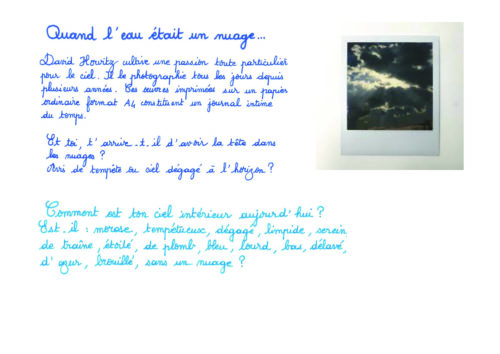 Quand l'eau était un nuage...
David Horvitz cultive une passion toute particulier
pour le ciel. Il le photographie tous les jours depuis
plusieurs années. Ces œuvres imprimées sur un papier
ordinaire format A4 constituent un journal intime
du temps.
Et toi, t'arrive-t-il d'avoir la tête dans
les nuages ?
Avis de tempête ou ciel dégagé à l'horizon ?
Comment est ton ciel intérieur aujourd'hui ?
Est-il : morose, tempétueux, dégagé, limpide, serein
de traîne, étoilé, de plomb, bleu, lourd, bas, délavé,
d'azur, brouillé, sans un nuage ?